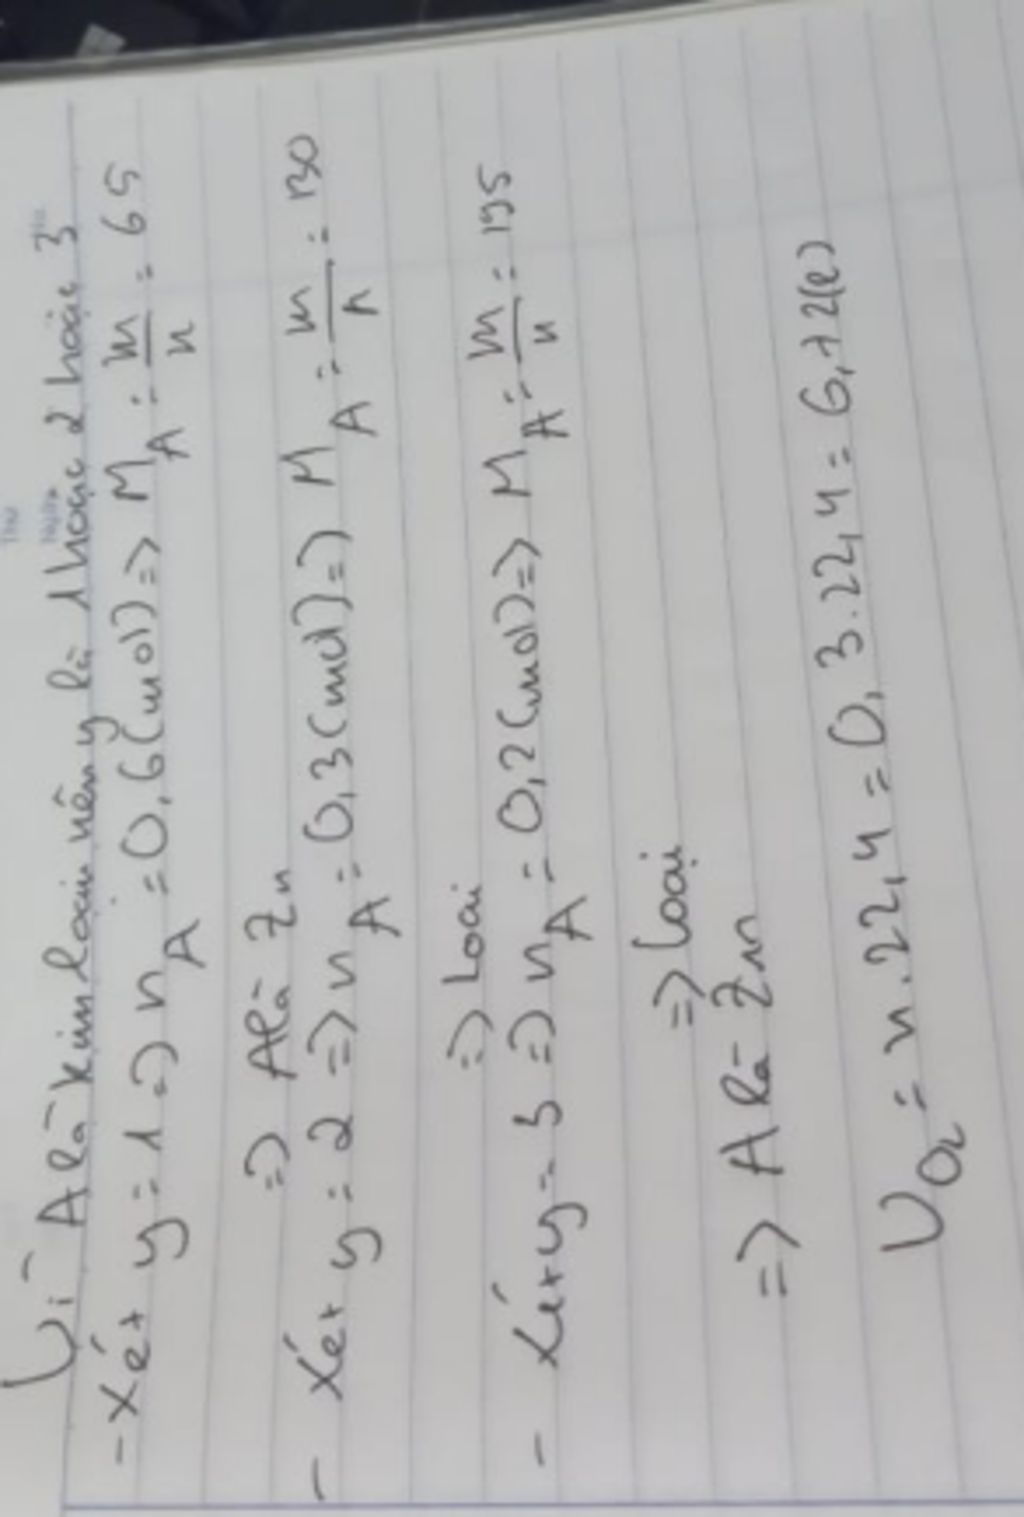 Vì A là kim loại nên y là 1 hoặc 2 hoặc 3
- Xét y = 1 => n_A = 0,6 (mol) => M_A = m/n = 65
=> A là Zn
- Xét y = 2 => n_A = 0,3 (mol) => M_A = m/n = 130
=> Loại
- Xét y = 3 => n_A = 0,2 (mol) => M_A = m/n = 195
=> Loại
=> A là Zn
V_O2 = n.22,4 = 0,3.22,4 = 6,72(l)